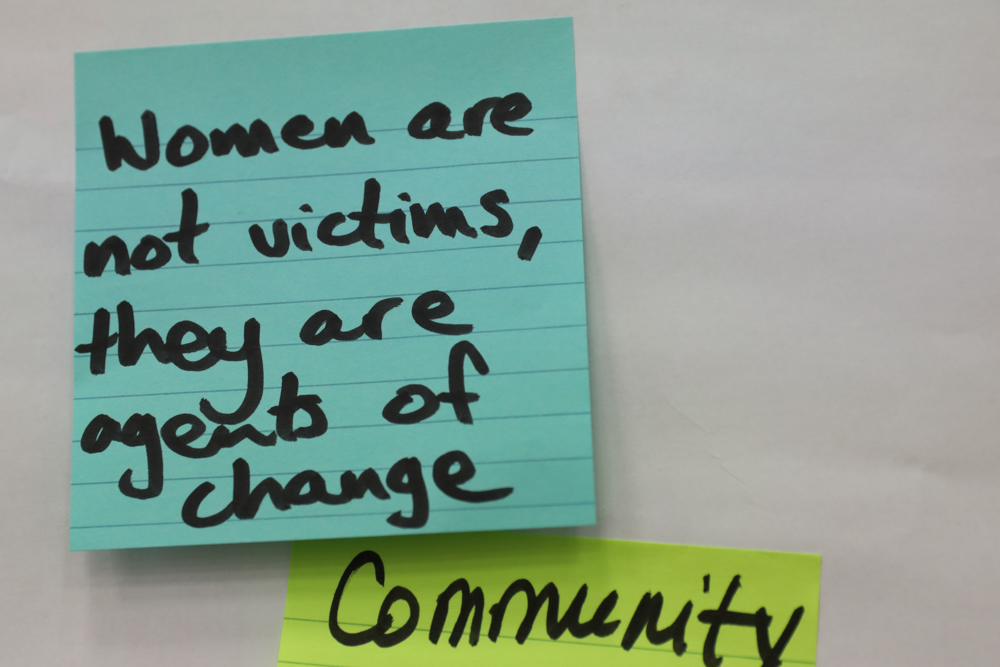 Women are
not victims,
they are
agents of
change
Community